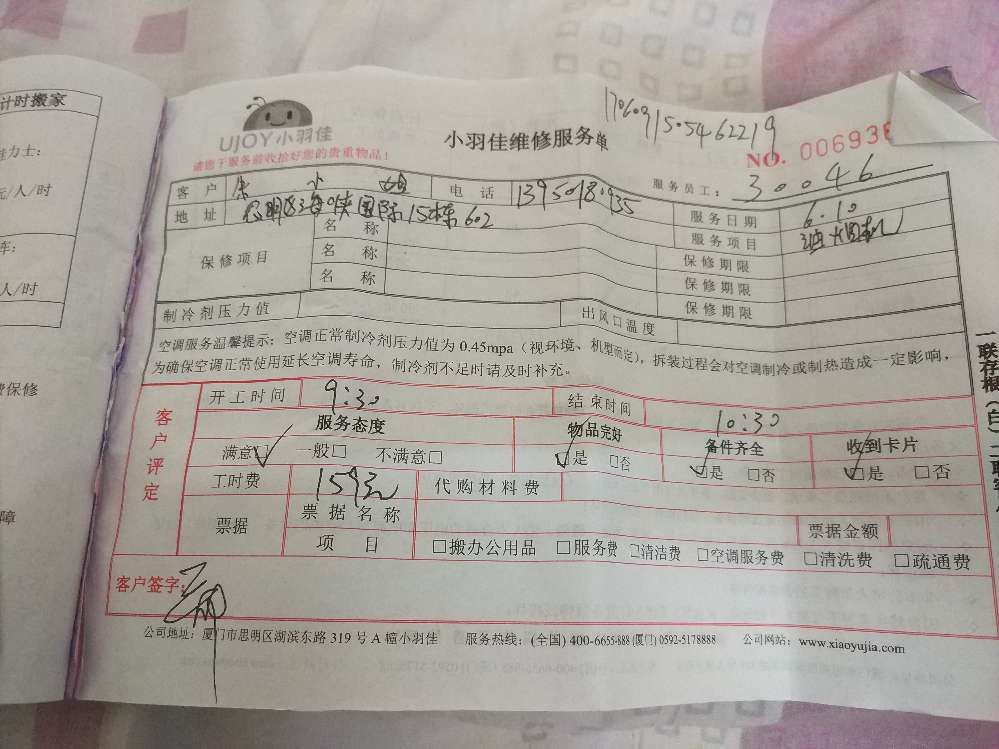 计时搬家
元/人/时
人/时
保修
障
170609150546221 9
UJOY小羽佳
小羽佳维修服务单
NO. 00693
请您于服务前收拾好您的贵重物品!
服务员工: 30046
客户 小姐 电话
地址 思明区海峡国际15栋602
服务日期 6.10
服务项目 油烟机
保修项目 名称 保修期限
名称 保修期限
名称 保修期限
制冷剂压力值 出风口温度
空调服务温馨提示:空调正常制冷剂压力值为 0.45mpa(视环境、机型而定),拆装过程会对空调制冷或制热造成一定影响,
为确保空调正常使用延长空调寿命,制冷剂不足时请及时补充。
客户评定
开工时间 9:30 结束时间 10:30
服务态度 物品完好 备件齐全 收到卡片
满意□ 一般□ 不满意□ □是 □否 □是 □否 □是 □否
工时费 159元 代购材料费
票据 票据名称 票据金额
项目 □搬办公用品 □服务费 □清洁费 □空调服务费 □清洗费 □疏通费
客户签字:
公司地址:厦门市思明区湖滨东路 319 号 A 幢小羽佳 服务热线:(全国) 400-6655-888 (厦门) 0592-5178888 公司网站:www.xiaoyujia.com
一联存根(白)